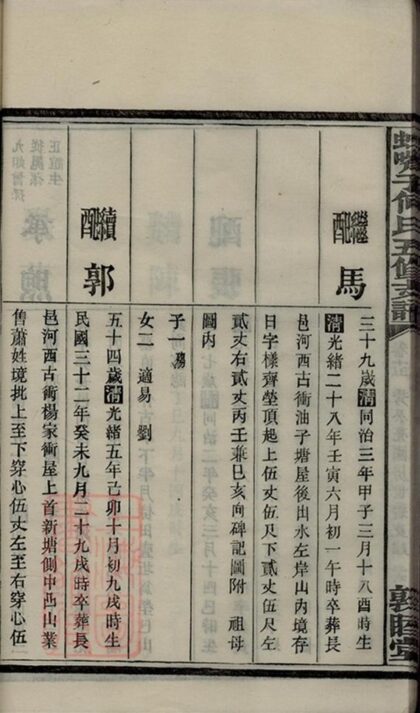 子何氏五修支譜
敦睦堂
繼配 馬
三十九歲淸同治三年甲子三月十八酉時生
淸光緒二十八年壬寅六月初一午時卒葬長
邑河西古衝油子塘屋後出水左岸山內境存
日字樣齊塋頂起上伍丈伍尺下貳丈伍尺左
貳丈右貳丈丙壬兼巳亥向碑記圖附 祖母
圖內
子一
女二 適易 劉
續配 郭
五十四歲淸光緒五年己卯十月初九戌時生
民國三十二年癸未九月二十九戌時卒葬長
邑河西古衝楊家衝屋上首新塘側中西山業
售蕭姓境批上至下穿心伍丈左至右穿心伍